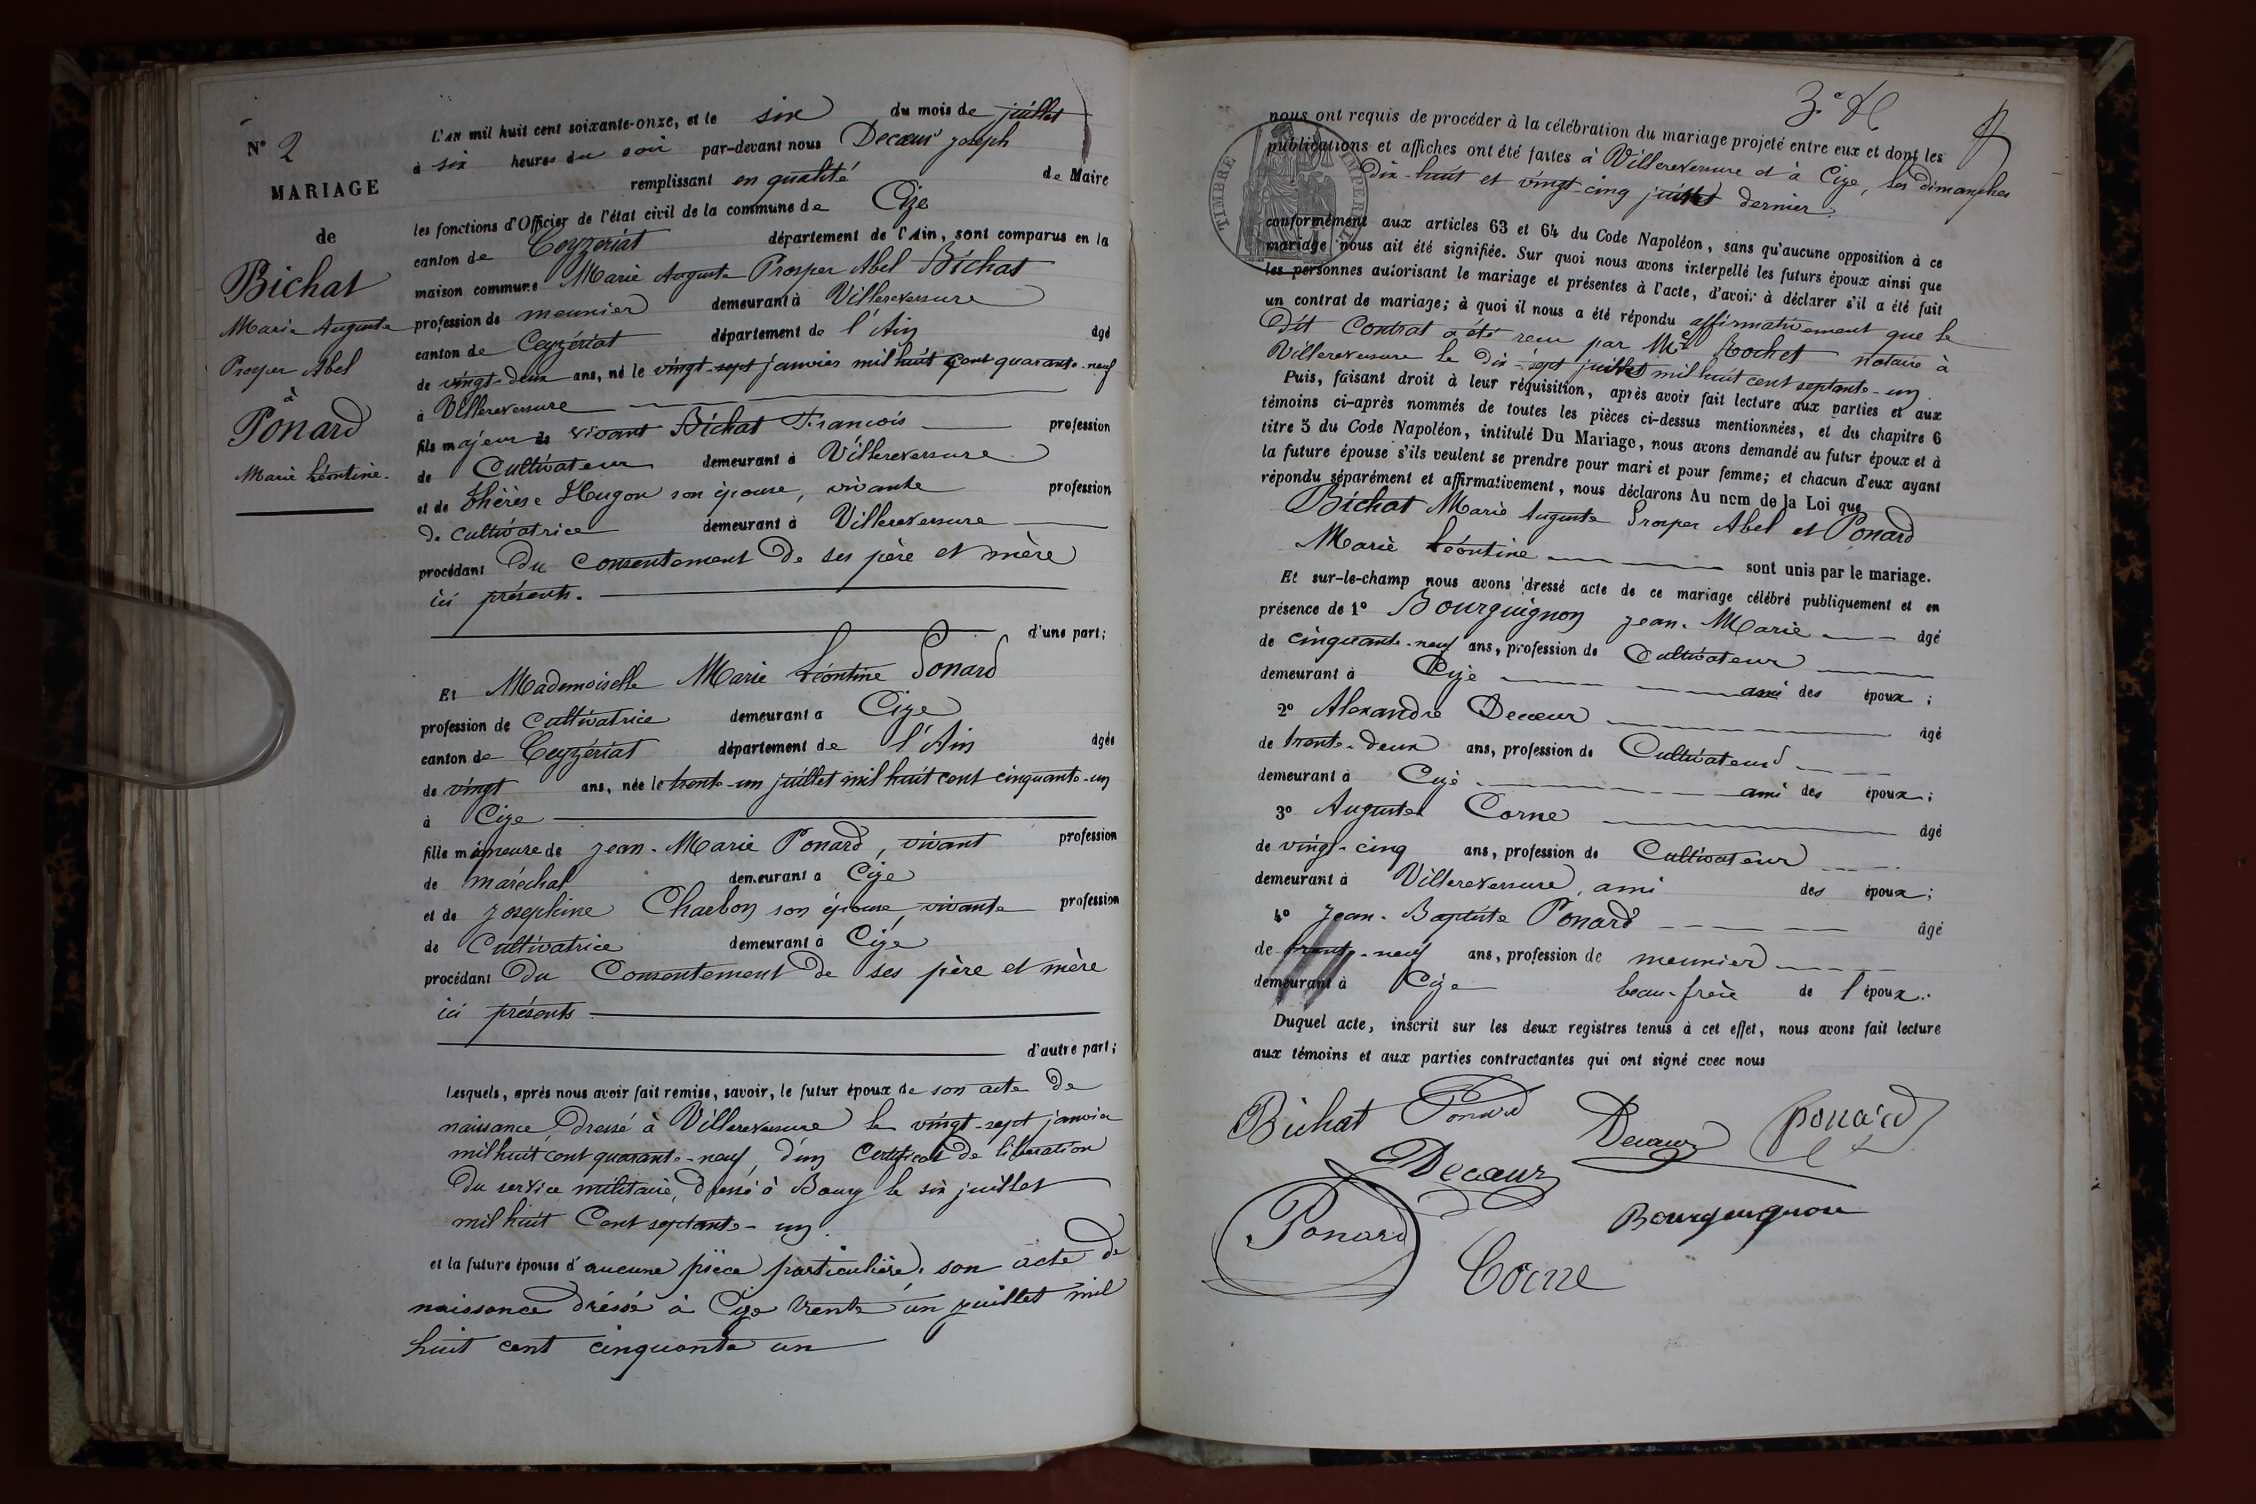 N° 2
MARIAGE
de
Bichat
Marie Auguste
Prosper Abel
à
Ponard
Marie Léontine.
L'AN mil huit cent soixante-onze, et le six du mois de juillet
à six heures du soir par-devant nous Decœur Joseph
remplissant en qualité de Maire
les fonctions d'Officier de l'état civil de la commune de Cize
canton de Ceyzériat département de l'Ain, sont comparus en la
maison commune Marie Auguste Prosper Abel Bichat
profession de meunier demeurant à Villereversure
canton de Ceyzériat département de l'Ain âgé
de vingt-deux ans, né le vingt-sept janvier mil huit cent quarante-neuf
à Villereversure
fils majeur de vivant Bichat François profession
de Cultivateur demeurant à Villereversure
et de Thérèse Hugon son épouse, vivante profession
de cultivatrice demeurant à Villereversure
procédant Du Consentement De ses père et mère
ici présents.
d'une part;
Et Mademoiselle Marie Léontine Ponard
profession de Cultivatrice demeurant à Cize
canton de Ceyzériat département de l'Ain âgée
de vingt ans, née le trente-un juillet mil huit cent cinquante-un
à Cize
fille mineure de Jean-Marie Ponard, vivant profession
de maréchal demeurant à Cize
et de Joséphine Charbon son épouse, vivante profession
de Cultivatrice demeurant à Cize
procédant Du Consentement De ses père et mère
ici présents
d'autre part;
Lesquels, après nous avoir fait remise, savoir, le futur époux de son acte De
naissance Dressé à Villereversure le vingt-sept janvier
mil huit cent quarante-neuf, d'un Certificat De libération
Du service militaire, Dressé à Bourg le six juillet
mil huit Cent septante-un.
et la future épouse d'aucune pièce particulière, son acte de
naissance dréssé à Cize trente un juillet mil
huit cent cinquante un
3e
nous ont requis de procéder à la célébration du mariage projeté entre eux et dont les
publications et affiches ont été faites à Villereversure et à Cize, les dimanches
Dix-huit et vingt-cinq juillet dernier.
TIMBRE IMPERIAL
conformément aux articles 63 et 64 du Code Napoléon, sans qu'aucune opposition à ce
mariage nous ait été signifiée. Sur quoi nous avons interpellé les futurs époux ainsi que
les personnes autorisant le mariage et présentes à l'acte, d'avoir à déclarer s'il a été fait
un contrat de mariage; à quoi il nous a été répondu affirmativement que le
Dit Contrat a été reçu par Me Rochet notaire à
Villereversure le Dix-sept juillet mil huit cent septante-un.
Puis, faisant droit à leur réquisition, après avoir fait lecture aux parties et aux
témoins ci-après nommés de toutes les pièces ci-dessus mentionnées, et du chapitre 6
titre 5 du Code Napoléon, intitulé Du Mariage, nous avons demandé au futur époux et à
la future épouse s'ils veulent se prendre pour mari et pour femme; et chacun d'eux ayant
répondu séparément et affirmativement, nous déclarons Au nom de la Loi que
Bichat Marie Auguste Prosper Abel et Ponard
Marie Léontine sont unis par le mariage.
Et sur-le-champ nous avons dressé acte de ce mariage célébré publiquement et en
présence de 1° Bourguignon Jean-Marie âgé
de cinquante-neuf ans, profession de Cultivateur
demeurant à Cize ami des époux;
2° Alexandre Decœur âgé
de trente-deux ans, profession de Cultivateur
demeurant à Cize ami des époux;
3° Auguste Corne âgé
de vingt-cinq ans, profession de Cultivateur
demeurant à Villereversure, ami des époux;
4° Jean-Baptiste Ponard âgé
de trente-neuf ans, profession de meunier
demeurant à Cize beau-frère de l'époux.
Duquel acte, inscrit sur les deux registres tenus à cet effet, nous avons fait lecture
aux témoins et aux parties contractantes qui ont signé avec nous
Bichat Ponard Decœur Ponard
Decœur
Ponard Bourguignon
Corne